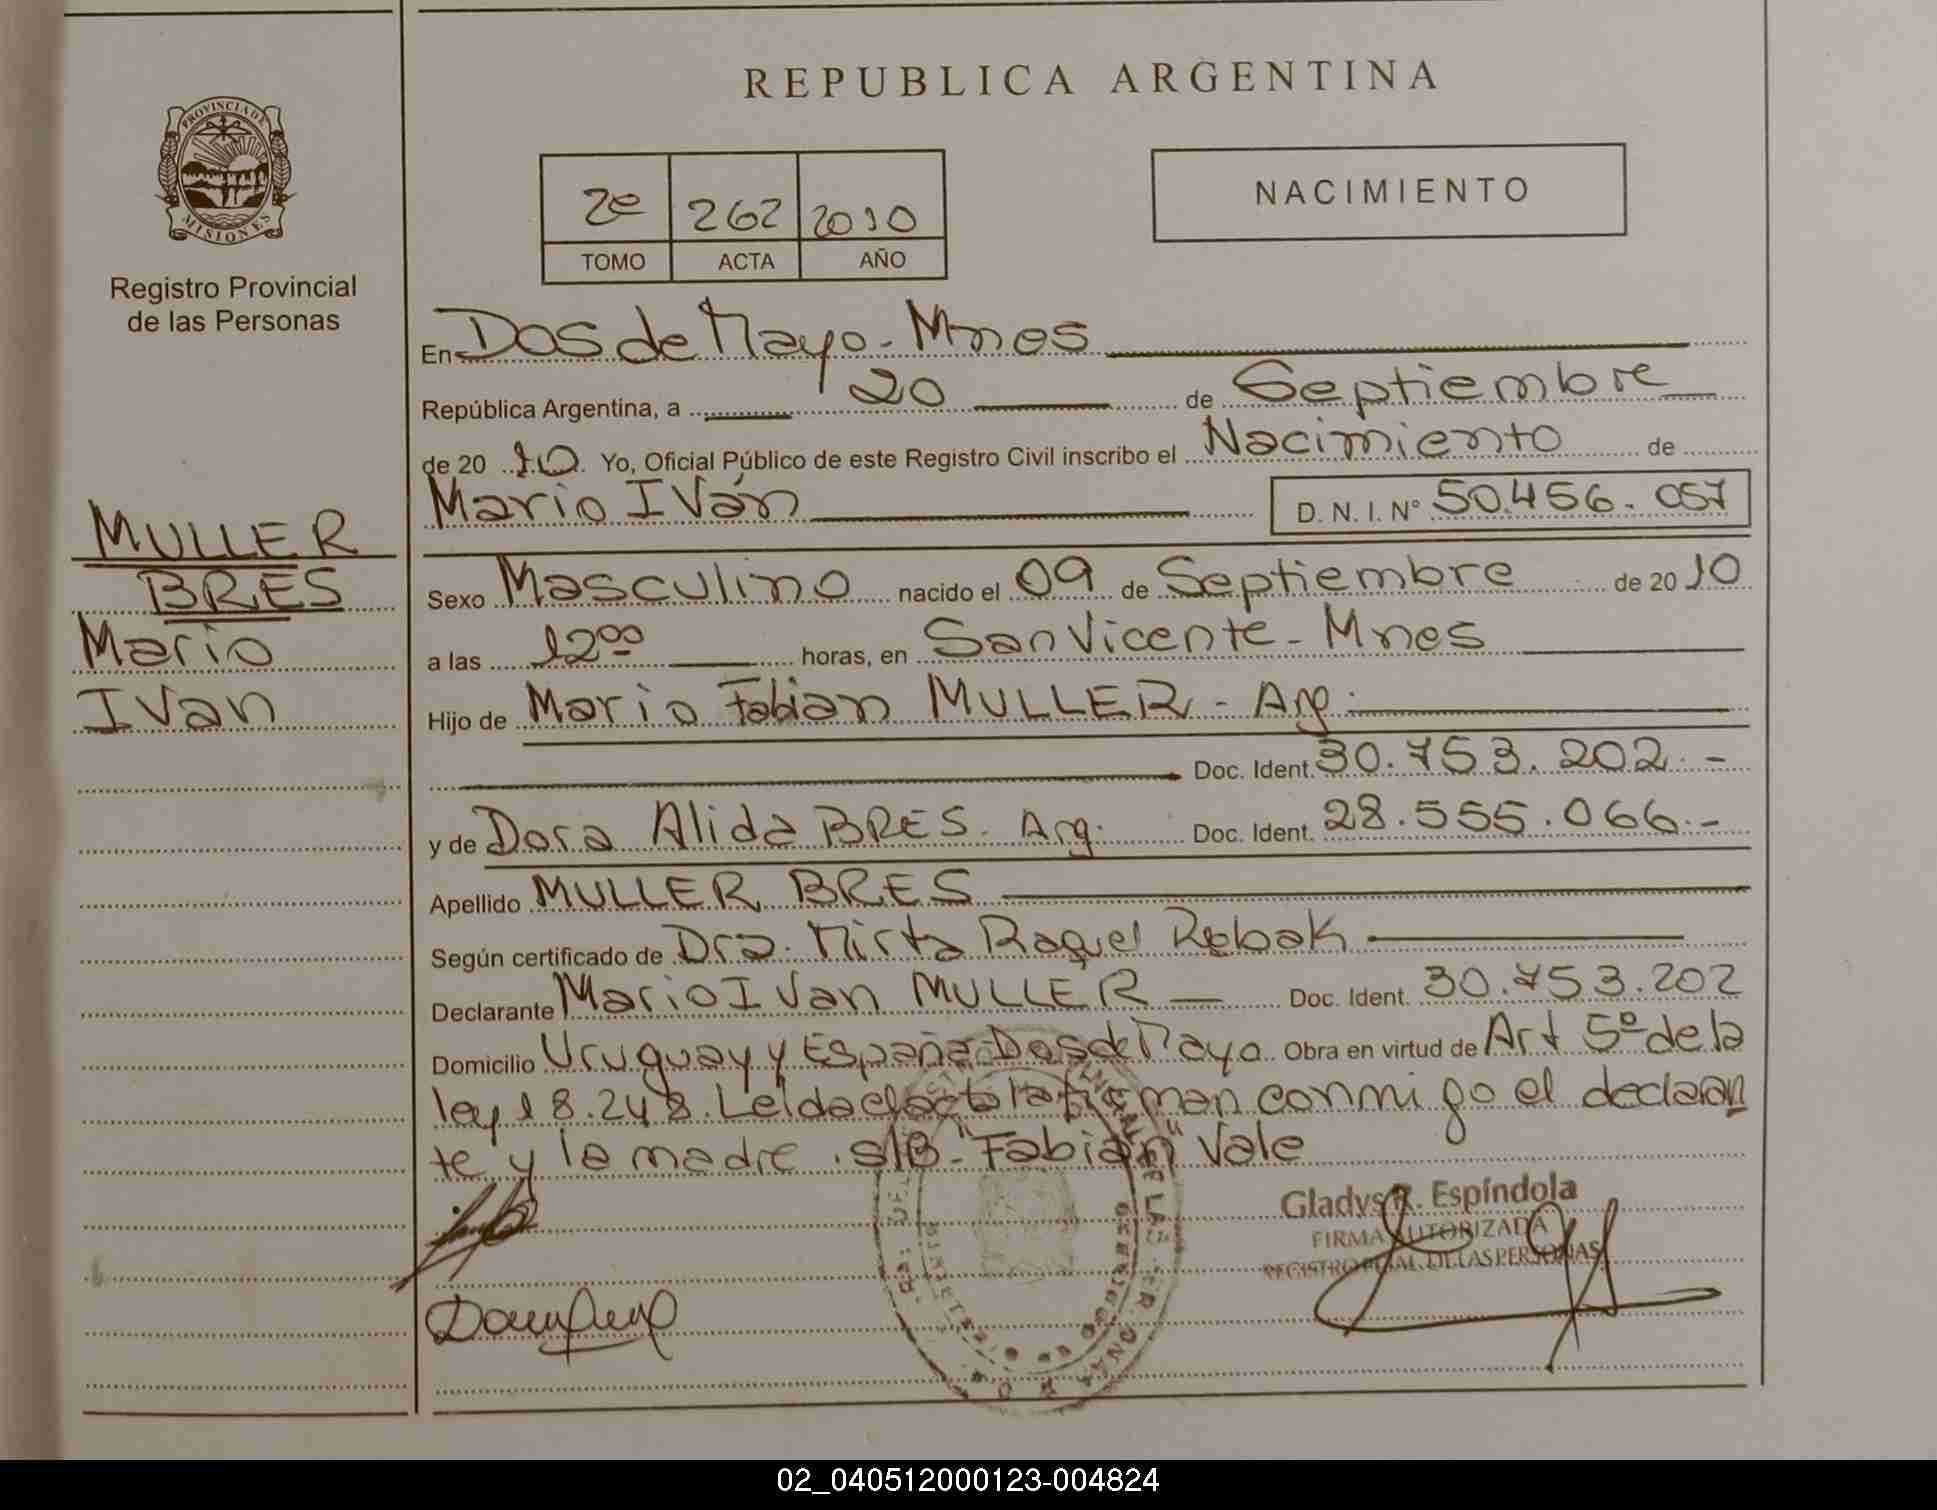 REPUBLICA ARGENTINA
PROVINCIA DE
MISIONES
Registro Provincial
de las Personas
2º 262 2010
TOMO ACTA AÑO
NACIMIENTO
MULLER
BRES
Mario
Ivan
En Dos de Mayo - Mnes
República Argentina, a 20 de Septiembre
de 20 10. Yo, Oficial Público de este Registro Civil inscribo el Nacimiento de
Mario Iván D. N. I. Nº 50.456.057
Sexo Masculino nacido el 09 de Septiembre de 20 10
a las 12⁰⁰ horas, en San Vicente - Mnes
Hijo de Mario Fabian MULLER - Arg.
Doc. Ident. 30.753.202.-
y de Dora Alida BRES. Arg. Doc. Ident. 28.555.066.-
Apellido MULLER BRES
Según certificado de Dra. Mirta Raquel Rebak
Declarante Mario Ivan MULLER Doc. Ident. 30.753.202
Domicilio Uruguay y España - Dos de Mayo. Obra en virtud de Art 5º de la
ley 18.248. Leída el acta la firman conmigo el declaran
te y la madre. S/B - "Fabian" Vale
Gladys R. Espíndola
FIRMA AUTORIZADA
REGISTRO PCIAL. DE LAS PERSONAS
02_040512000123-004824